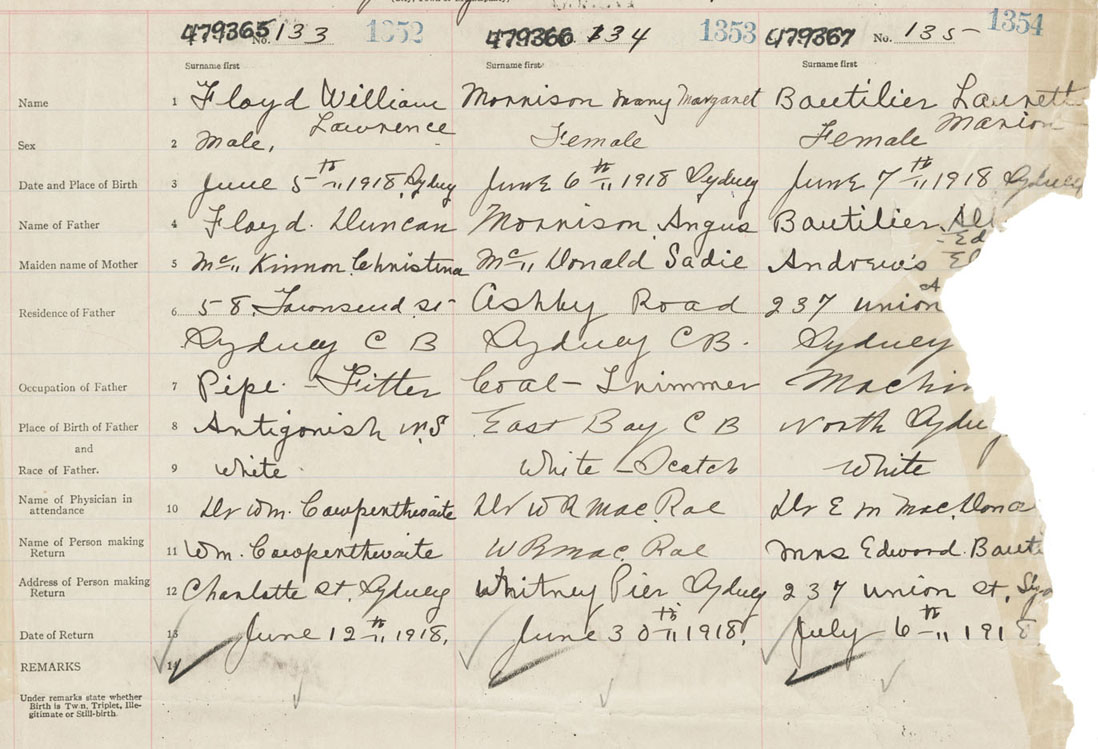 479365 No. 133 1352 479366 134 1353 479367 No. 135 1354
Surname first Surname first Surname first
Name 1 Floyd William Morrison Mary Margaret Boutilier Laurett
Lawrence Marion
Sex 2 Male, Female Female
Date and Place of Birth 3 June 5th 1918 Sydney June 6th 1918 Sydney June 7th 1918 Sydney
Name of Father 4 Floyd. Duncan Morrison Angus Boutilier
- Ed
Maiden name of Mother 5 Mc Kinnon Christina Mc Donald Sadie Andrews El
Residence of Father 6 58, Townsend st Ashby Road 237 union
Sydney C B Sydney CB. Sydney
Occupation of Father 7 Pipe - Fitter Coal - Trimmer Machin
Place of Birth of Father 8 Antigonish N.S East Bay C B North Sydney
and
Race of Father. 9 White White - Scotch White
Name of Physician in
attendance 10 Dr Wm. Cowpenthwaite Dr W R Mac Rae Dr E M Mac Dona
Name of Person making
Return 11 Wm. Cowpenthwaite W R Mac Rae Mrs Edward Boute
Address of Person making
Return 12 Charlotte St. Sydney Whitney Pier Sydney 237 Union St.
Date of Return 13 June 12th 1918, June 30th 1918, July 6th 191
REMARKS 14
Under remarks state whether
Birth is Twin, Triplet, Ille-
gitimate or Still-birth.